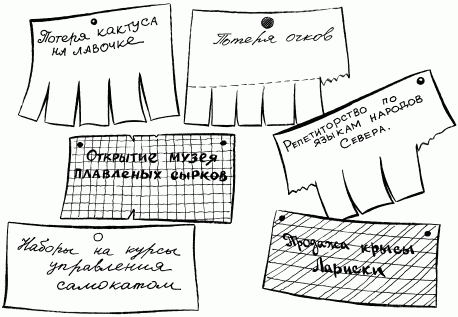 Потеря кактуса
на лавочке
Потеря очков
Репетиторство по
языкам народов
Севера.
Открытие музея
плавленых сырков
Наборы на курсы
управления
самокатом
Продажа крысы
Лариски